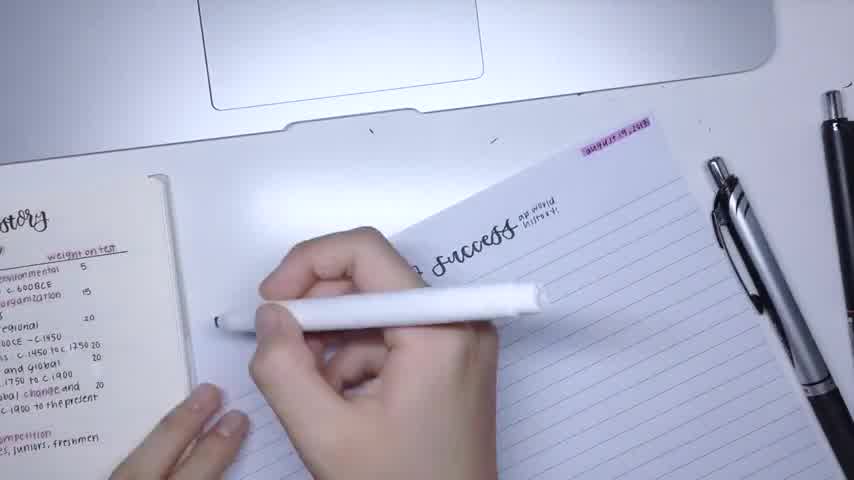 story
weight on test
environmental 5
c.600BCE
organization 15
regional 20
00CE - c.1450
c.1450 to c.1250 20
and global 20
.1750 to c.1900
obal change and 20
c.1900 to the present
ompetition
es, juniors, freshmen
august 19, 2017
success ap world
history: